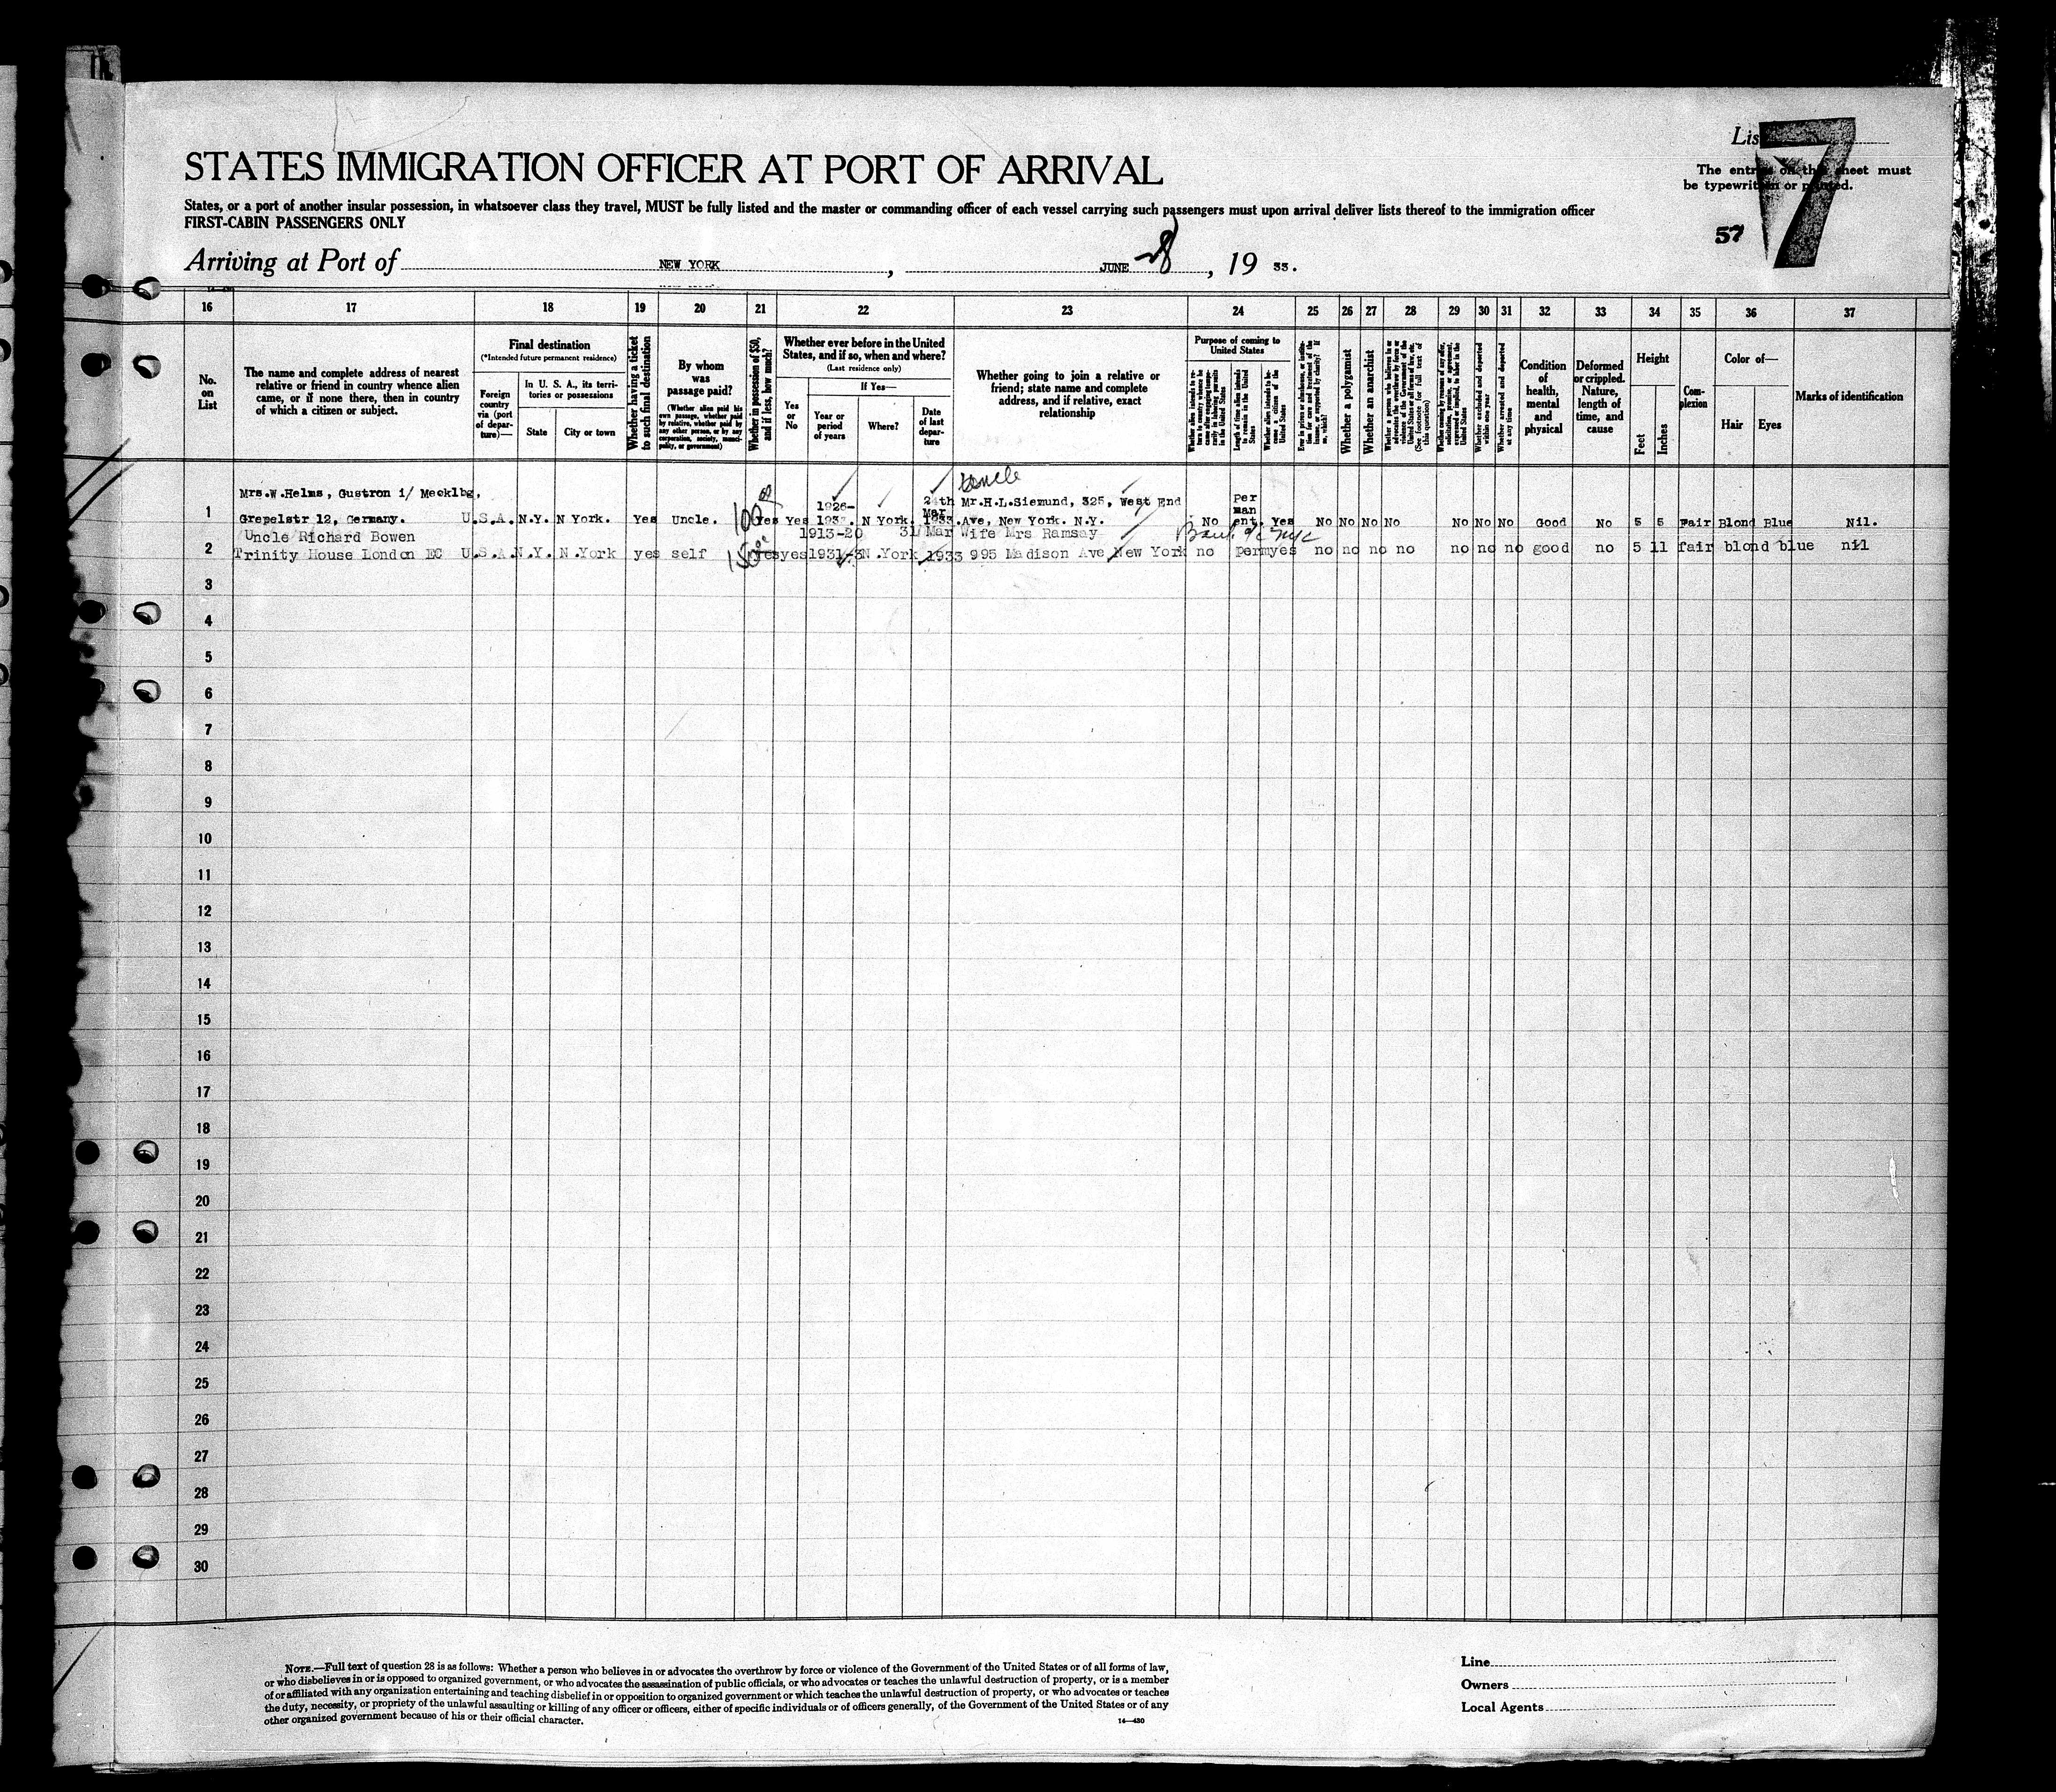 List
7
The entries on this sheet must
be typewritten or printed.
57
STATES IMMIGRATION OFFICER AT PORT OF ARRIVAL
States, or a port of another insular possession, in whatsoever class they travel, MUST be fully listed and the master or commanding officer of each vessel carrying such passengers must upon arrival deliver lists thereof to the immigration officer
FIRST-CABIN PASSENGERS ONLY
Arriving at Port of NEW YORK, JUNE 28, 19 33.
16 17 18 19 20 21 22 23 24 25 26 27 28 29 30 31 32 33 34 35 36 37
No.
on
List
The name and complete address of nearest
relative or friend in country whence alien
came, or if none there, then in country
of which a citizen or subject.
Final destination
(*Intended future permanent residence)
Foreign
country
via (port
of depar-
ture)—
In U. S. A., its terri-
tories or possessions
State
City or town
Whether having a ticket
to such final destination
By whom
was
passage paid?
(Whether alien paid his
own passage, whether paid
by relative, whether paid by
any other person, or by any
corporation, society, munici-
pality, or government)
Whether in possession of $50,
and if less, how much?
Whether ever before in the United
States, and if so, when and where?
(Last residence only)
Yes
or
No
If Yes—
Year or
period
of years
Where?
Date
of last
depar-
ture
Whether going to join a relative or
friend; state name and complete
address, and if relative, exact
relationship
Purpose of coming to
United States
Length of time alien intends
to remain in the United
States
Whether alien intends to be-
come a citizen of the
United States
Whether a polygamist
Whether an anarchist
(See footnote for full text of
this question)
Whether excluded and deported
within one year
Whether arrested and deported
at any time
Condition
of
health,
mental
and
physical
Deformed
or crippled.
Nature,
length of
time, and
cause
Height
Feet
Inches
Com-
plexion
Color of—
Hair
Eyes
Marks of identification
Uncle
Mrs.W.Helms, Gustron i/ Mecklbg,
1926- 24th Mr.H.L.Siemund, 325, West End Per
Mar man
1 Grepelstr 12, Germany. U.S.A. N.Y. N York. Yes Uncle. 100 Yes Yes 1933. N York. 1933. Ave, New York. N.Y. No ent. Yes No No No No No No No Good No 5 5 Fair Blond Blue Nil.
Uncle Richard Bowen 1913-20 31 Mar Wife Mrs Ramsay
2 Trinity House London EC U.S.A. N.Y. N.York yes self 150 yes yes 1931-3 N.York 1933 995 Madison Ave New York no perm yes no no no no no no no good no 5 11 fair blond blue nil
3
4
5
6
7
8
9
10
11
12
13
14
15
16
17
18
19
20
21
22
23
24
25
26
27
28
29
30
NOTE.—Full text of question 28 is as follows: Whether a person who believes in or advocates the overthrow by force or violence of the Government of the United States or of all forms of law,
or who disbelieves in or is opposed to organized government, or who advocates the assassination of public officials, or who advocates or teaches the unlawful destruction of property, or is a member
of or affiliated with any organization entertaining and teaching disbelief in or opposition to organized government or which teaches the unlawful destruction of property, or who advocates or teaches
the duty, necessity, or propriety of the unlawful assaulting or killing of any officer or officers, either of specific individuals or of officers generally, of the Government of the United States or of any
other organized government because of his or their official character.
14—430
Line
Owners
Local Agents